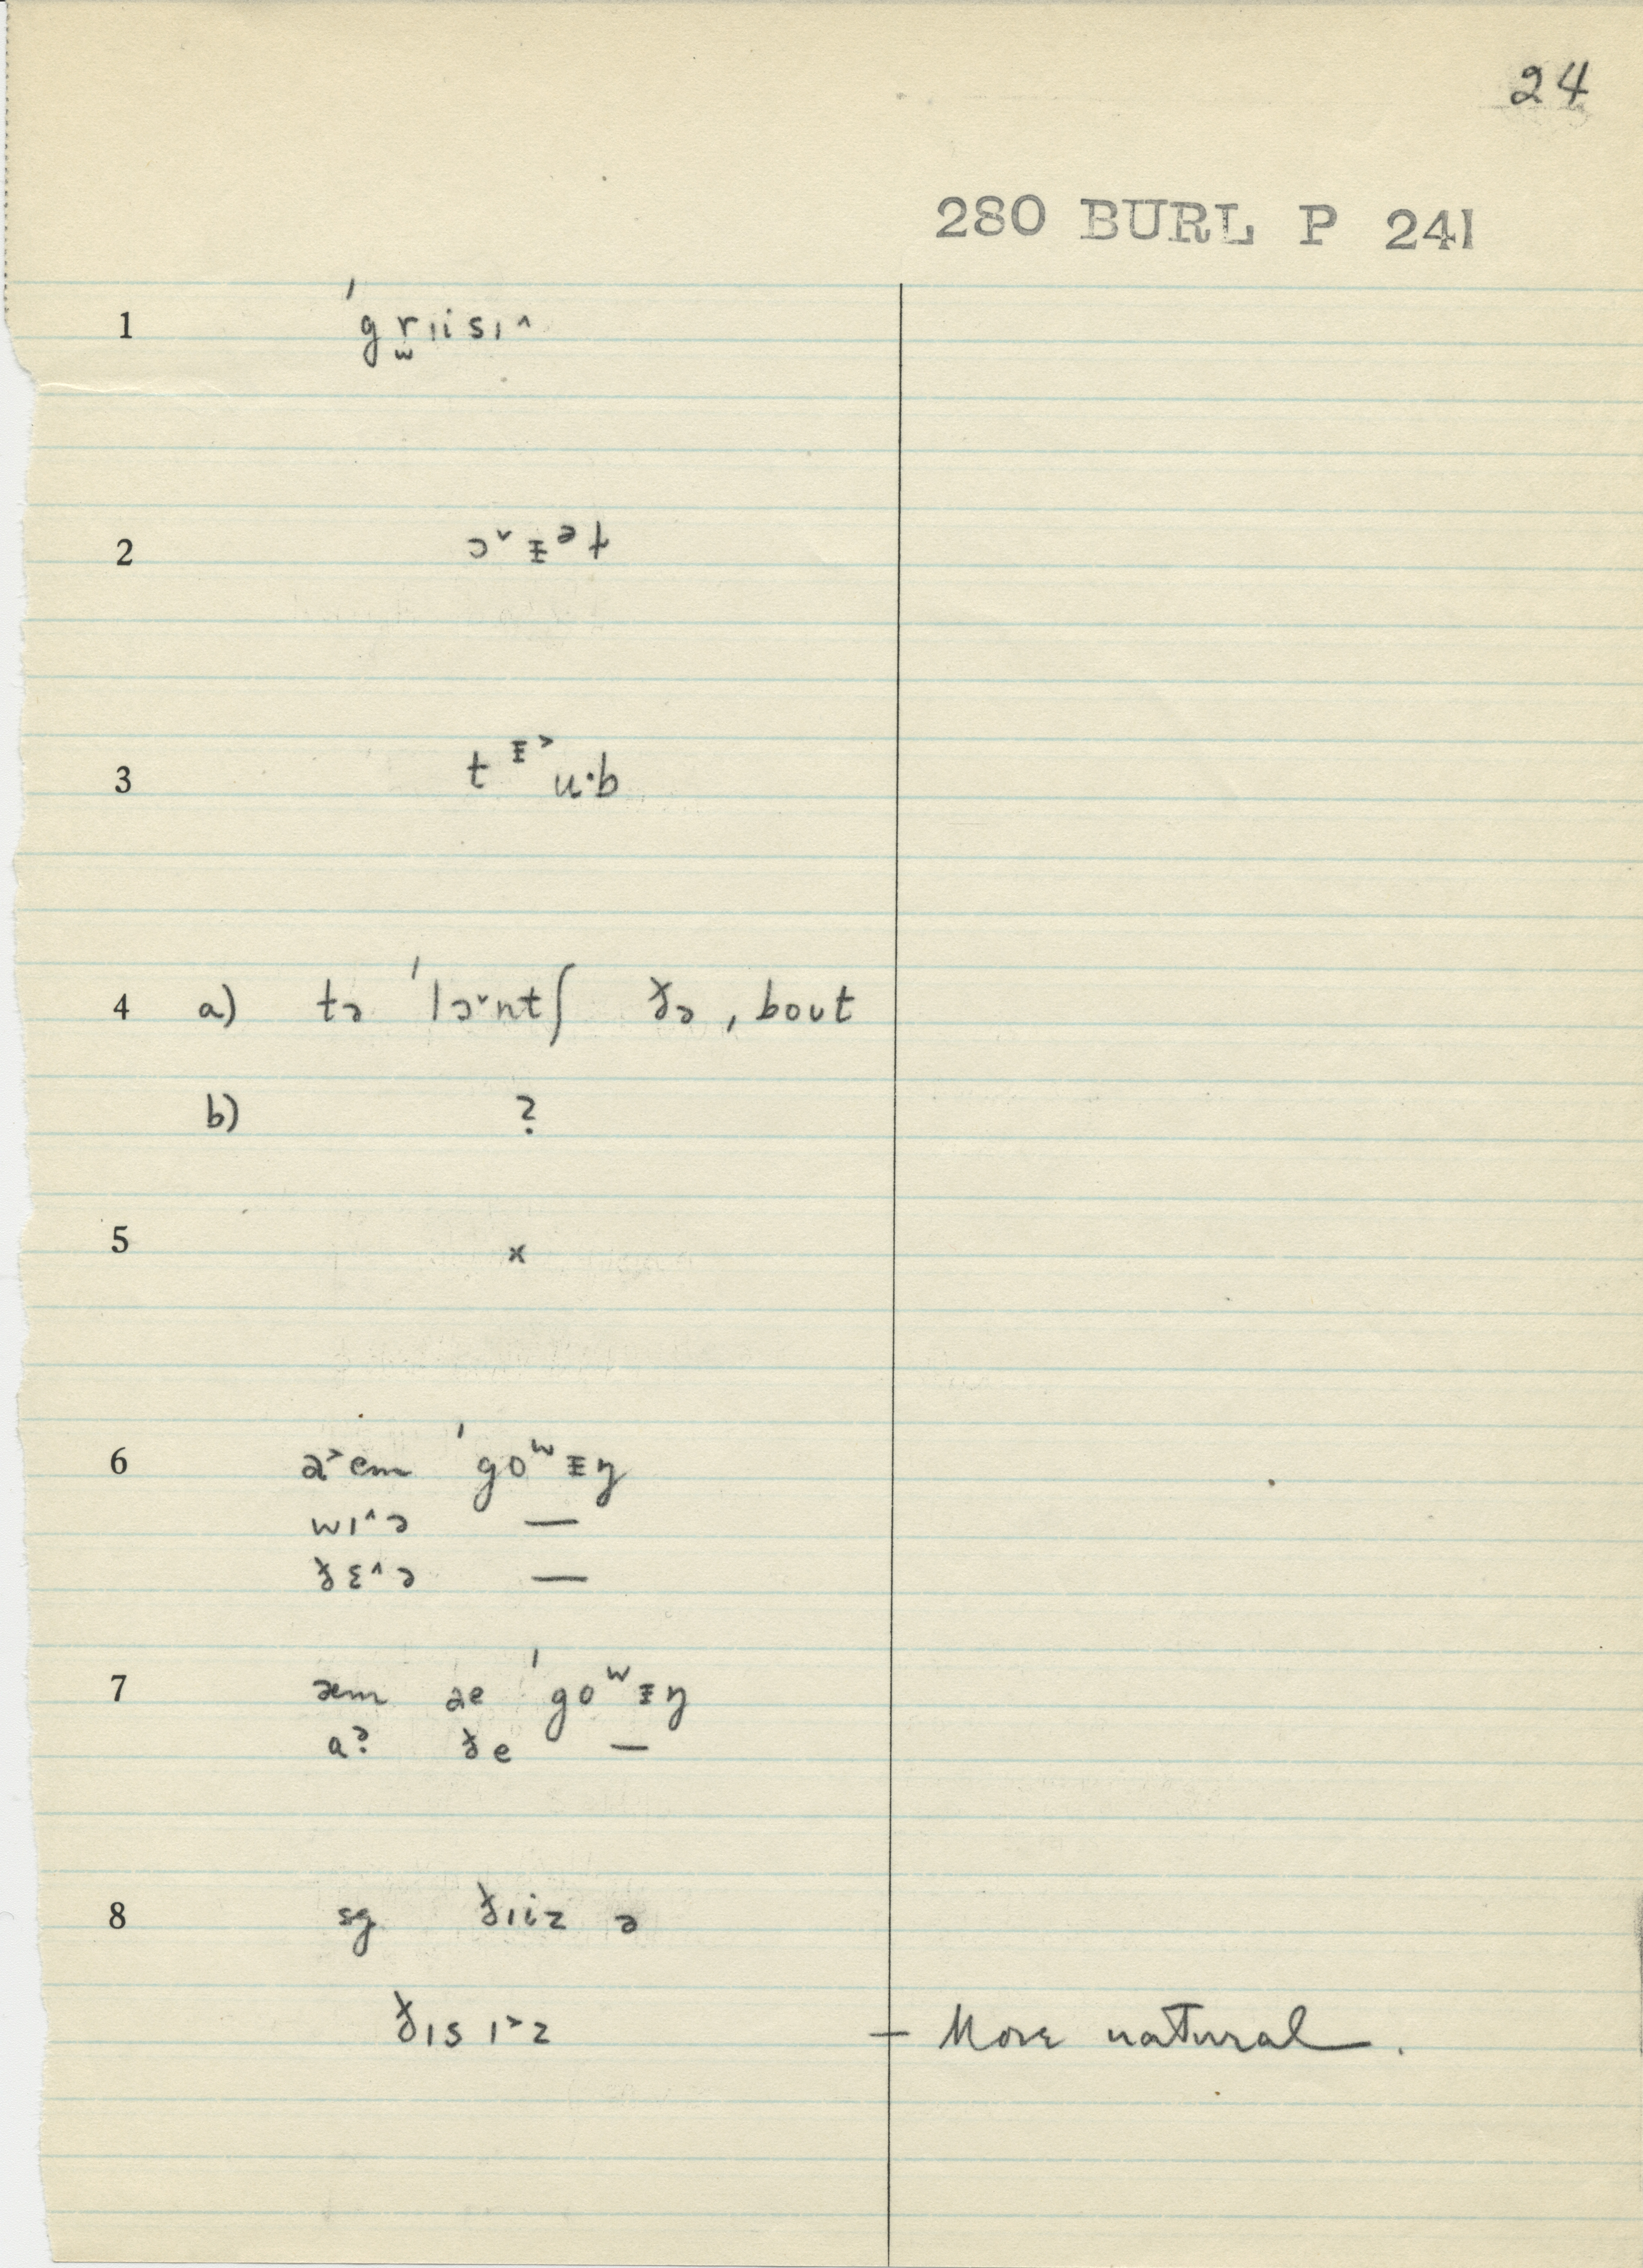 24
280 BURL P 241
1 ˈgr̫ɪisɪ^
2 ɔ˅ᵻᵊɫ
3 tᵻ˃u·b
4 a) tə ˈlɔ˅ntʃ ðə ˌbout
b) ?
5 x
6 a˃em ˈgoʷᵻŋ
wɪ^ə —
ðɛ^ə —
7 æm ae ˈgoʷᵻŋ
ðe —
8 sg ðɪiz ə
ðɪs ɪ˃z — More natural.